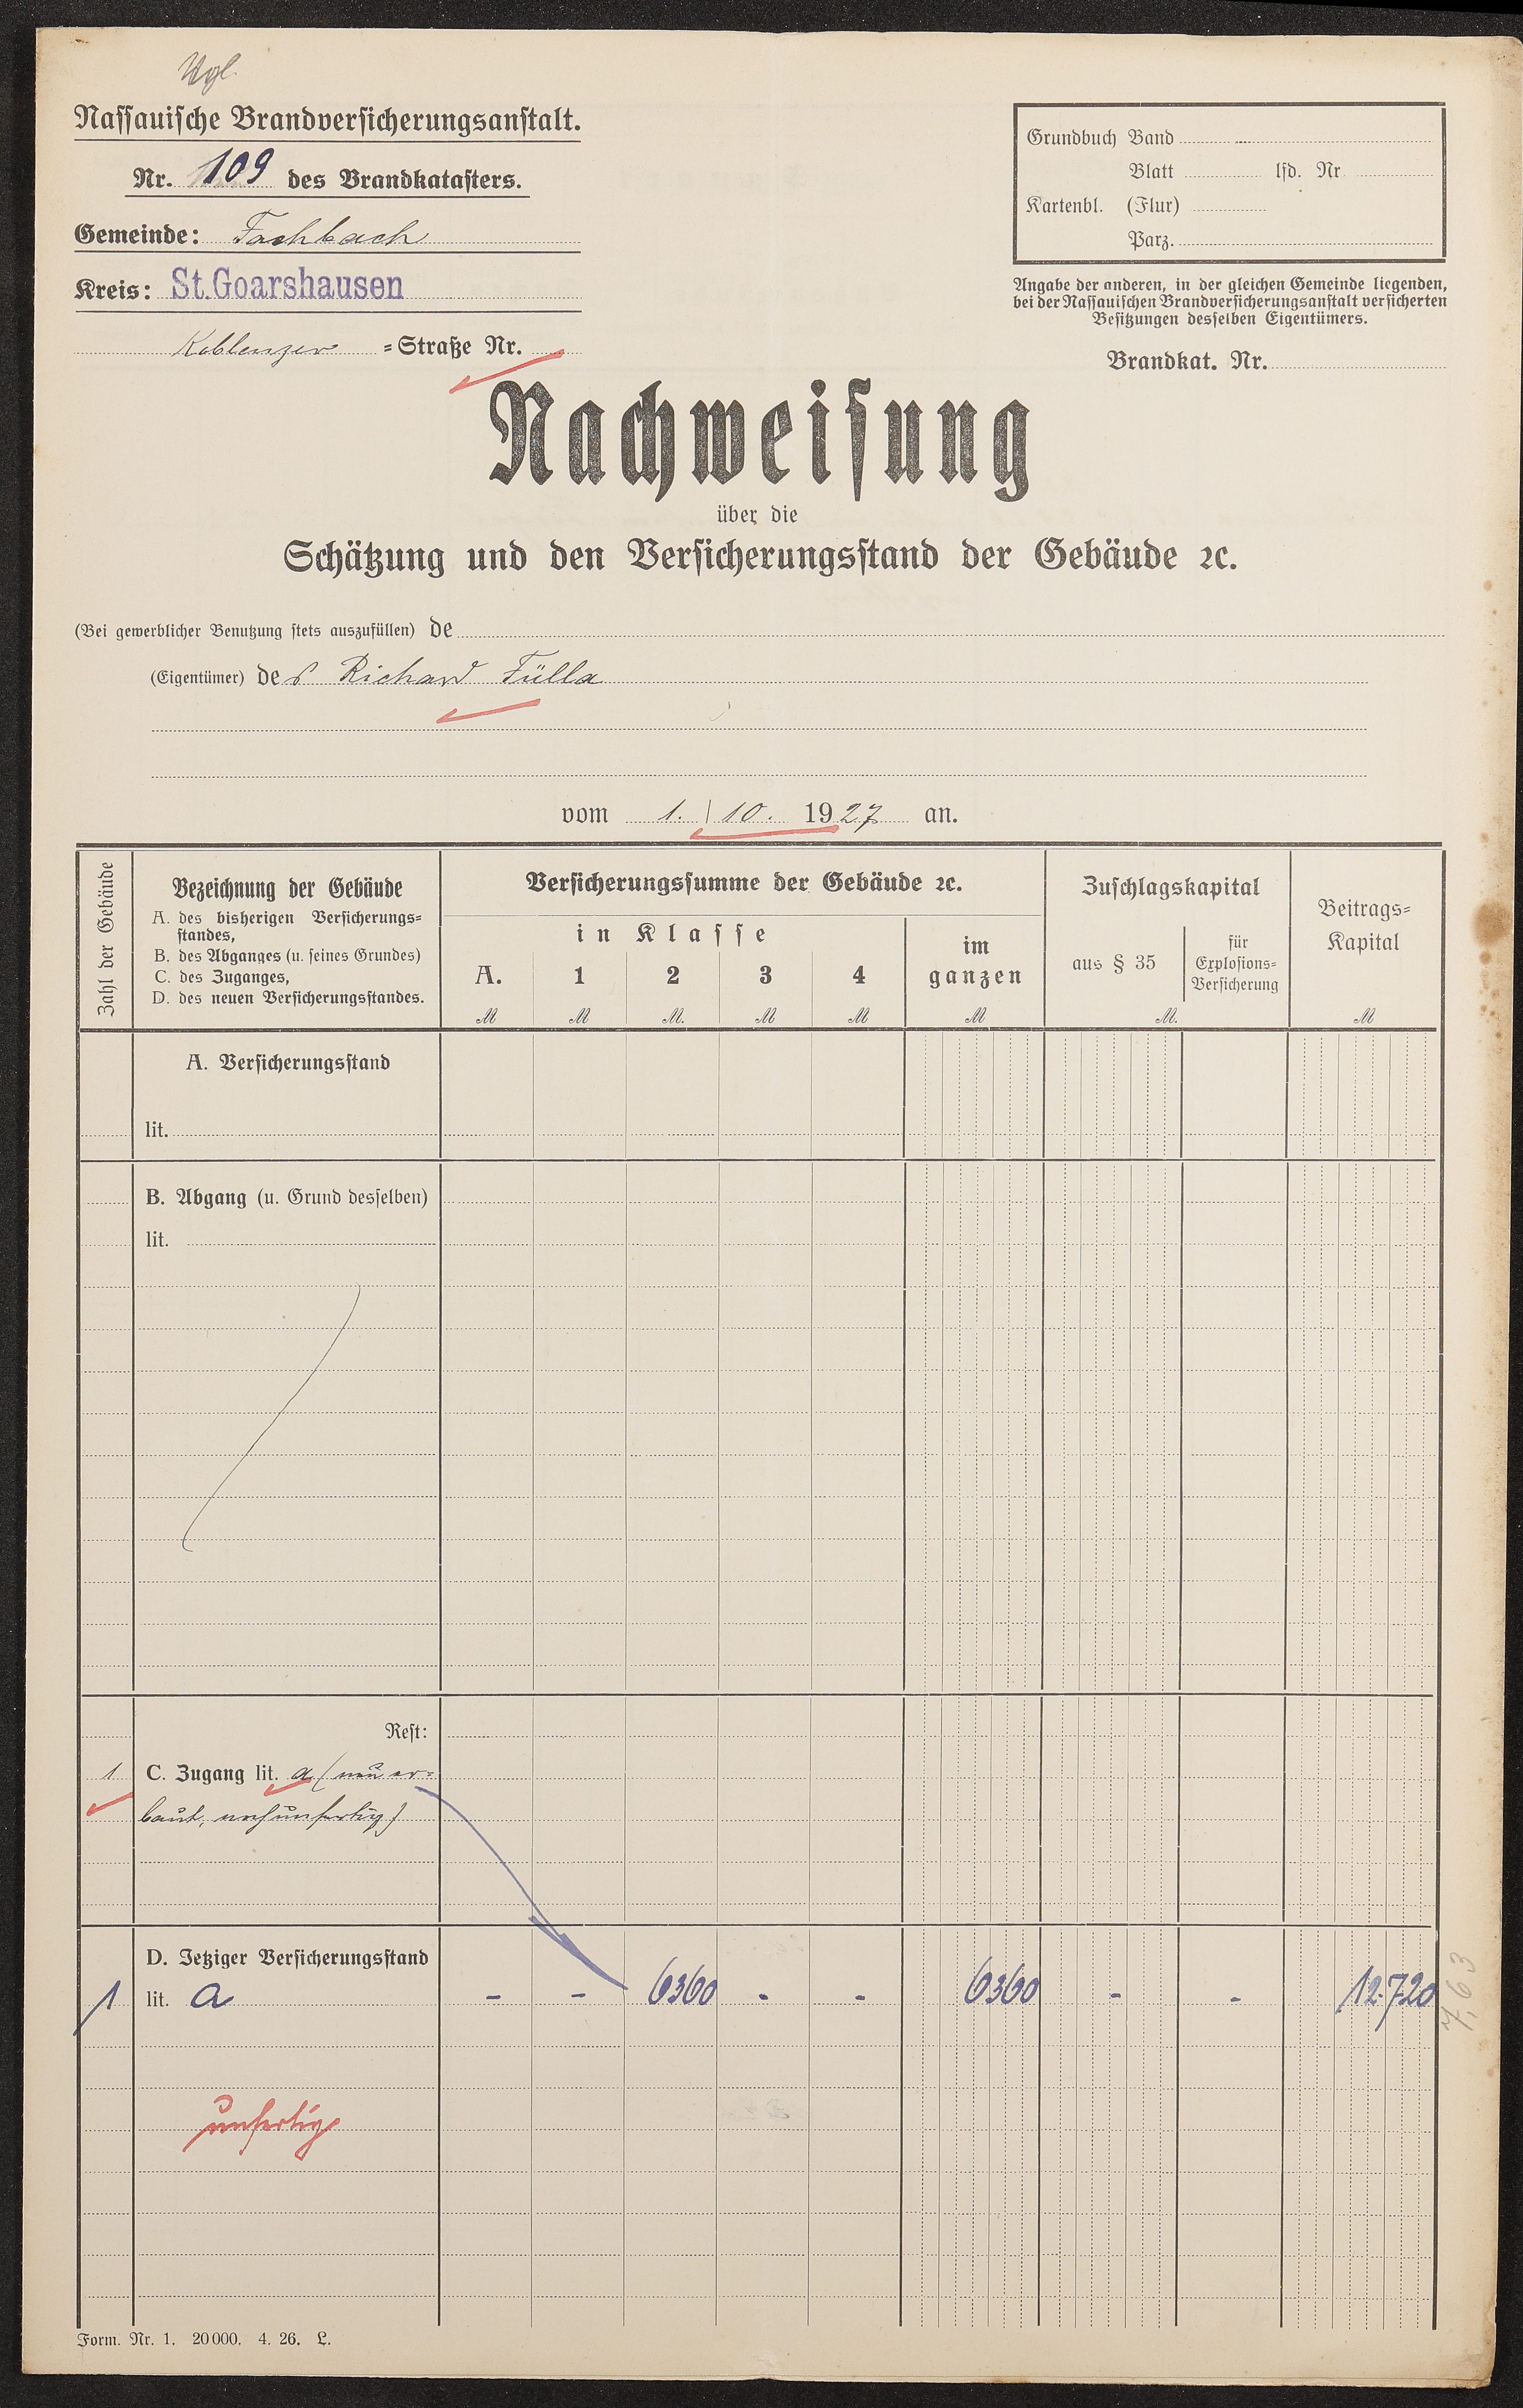 Vgl.
Nassauische Brandversicherungsanstalt.
Nr. 109 des Brandkatasters.
Gemeinde: Fachbach
Kreis: St. Goarshausen
Koblenzer =Straße Nr.
Grundbuch Band
Blatt lfd. Nr
Kartenbl. (Flur)
Parz.
Angabe der anderen, in der gleichen Gemeinde liegenden,
bei der Nassauischen Brandversicherungsanstalt versicherten
Besitzungen desselben Eigentümers.
Brandkat. Nr.
Nachweisung
über die
Schätzung und den Versicherungsstand der Gebäude ꝛc.
(Bei gewerblicher Benutzung stets auszufüllen) de
(Eigentümer) des Richard Fülla
vom 1. 10. 1927 an.
Zahl der Gebäude
Bezeichnung der Gebäude
A. des bisherigen Versicherungs=
standes,
B. des Abganges (u. seines Grundes)
C. des Zuganges,
D. des neuen Versicherungsstandes.
Versicherungssumme der Gebäude ꝛc.
in Klasse
A. 1 2 3 4
im
ganzen
Zuschlagskapital
aus § 35
für
Explosions=
Versicherung
Beitrags=
Kapital
M M M. M M M M. M
A. Versicherungsstand
lit.
B. Abgang (u. Grund desselben)
lit.
Rest:
1 C. Zugang lit. a (neu er=
baut, noch unfertig)
D. Jetziger Versicherungsstand
1 lit. a - - 6360 - - 6360 - - 12.720
7,63
unfertig
Form. Nr. 1. 20000. 4. 26. L.